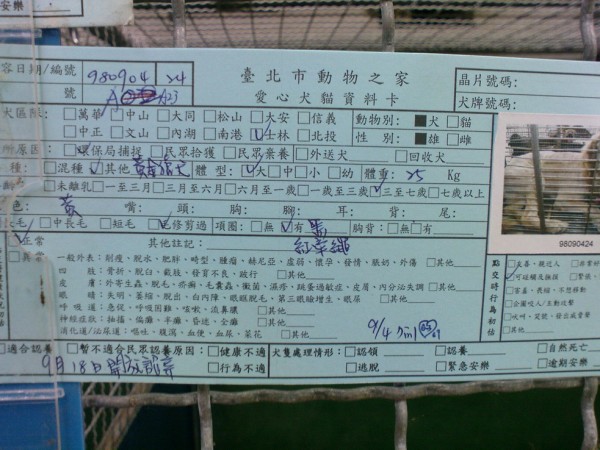 容日期/編號 980904 24 臺北市動物之家 晶片號碼:
號 A 023 愛心犬貓資料卡 犬牌號碼:
犬區隊: □萬華 □中山 □大同 □松山 □大安 □信義 動物別: ■犬 □貓
□中正 □文山 □內湖 □南港 ☑士林 □北投 性 別: ■雄 □雌
所原因: □環保局捕捉 □民眾拾獲 □民眾棄養 □外送犬 □回收犬
種: □混種 ☑其他 黃金獵犬 體 型: ☑大 □中 □小 □幼 體重: 25 Kg
□未離乳 □一至三月 □三月至六月 □六月至一歲 □一歲至三歲 ☑三至七歲 □七歲以上
色: 黃 嘴: 頭: 胸: 腳: 耳: 背: 尾:
長毛 □中長毛 □短毛 ☑修剪過 項圈: □無 ☑有 黑 胸背: □無 □有
☑正常 其他註記: 紅牽繩
□異常 一般外表: 削瘦、脫水、肥胖、畸型、腫瘤、赫尼亞、虛弱、懷孕、發情、脹奶、外傷 □其他
四 肢: 骨折、脫臼、截肢、發育不良、跛行 □其他
皮 膚: 外寄生蟲、脫毛、疥癬、毛囊蟲、黴菌、濕疹、跳蚤過敏症、皮屑、內分泌失調 □其他
眼 睛: 失明、萎縮、脫出、白內障、眼瞼脫毛、第三眼瞼增生、眼屎 □其他
呼 吸 道: 急促、呼吸困難、咳嗽、流鼻膿 □其他
神經症狀: 抽搐、偏癱、半癱、昏迷、全癱 □其他
消化道/泌尿道: 嘔吐、腹瀉、血便、血尿、菜花 □其他
9/4
98090424
點交時行為初估
□友善、親近人
☑可碰觸及撫摸
□害羞、畏縮、不想移動
□企圖咬人/主動攻擊
適合認養 □暫不適合民眾認養原因: □健康不適 □行為不適
9月18日開放認養
犬隻處理情形: □認領 □認養 □自然死亡
□逃脫 □緊急安樂 □逾期安樂